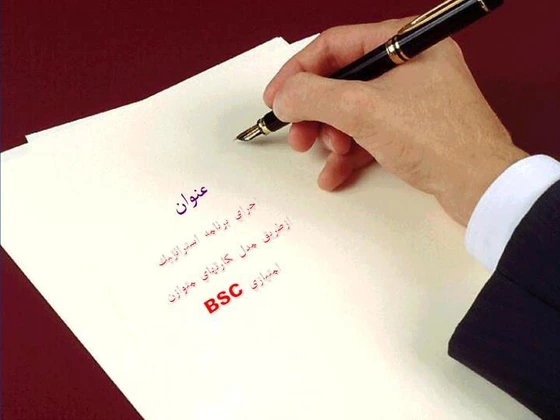 عنوان
جراي برنامه استراتژيك
ازطريق مدل كارتهاي متوازن
امتيازي BSC